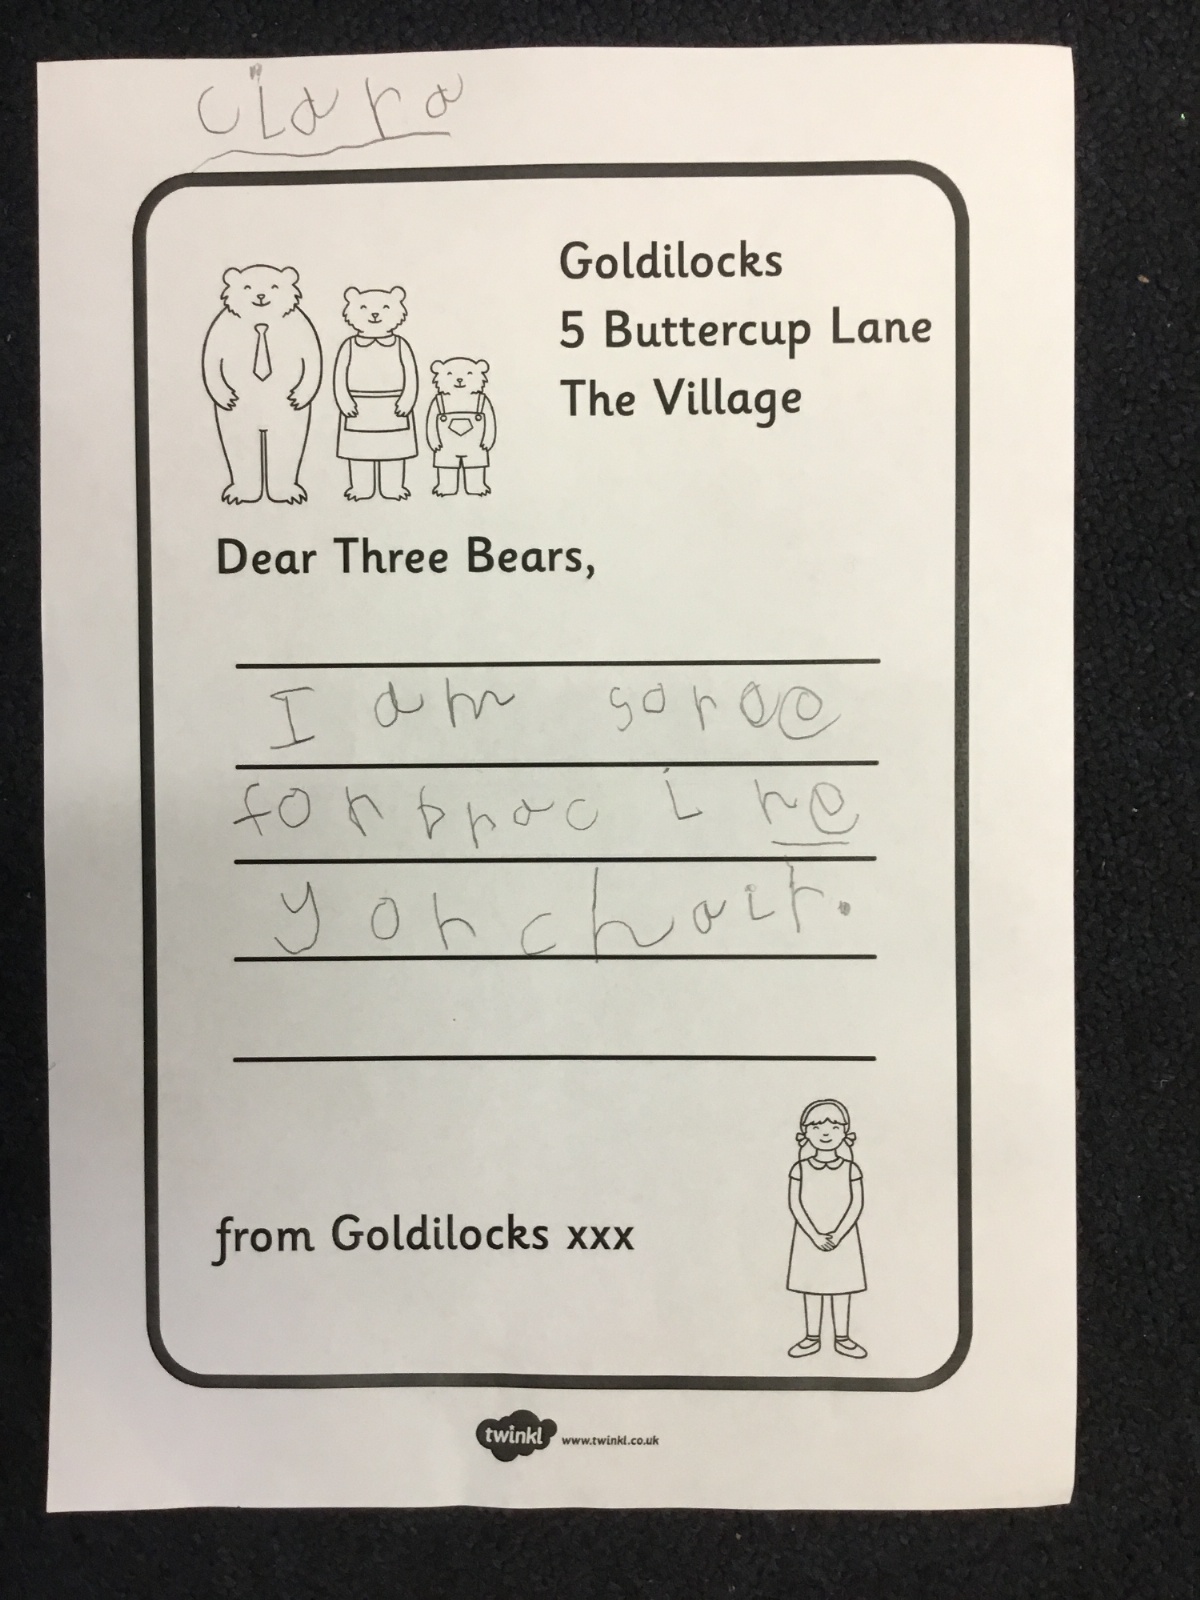 ciara
Goldilocks
5 Buttercup Lane
The Village
Dear Three Bears,
I am soree
for bracine
yor chair.
from Goldilocks xxx
twinkl www.twinkl.co.uk